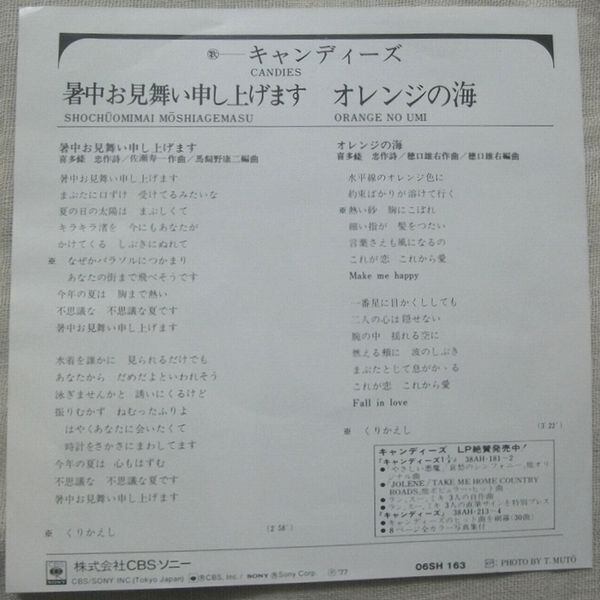 歌―キャンディーズ
CANDIES
暑中お見舞い申し上げます
SHOCHŪOMIMAI MŌSHIAGEMASU
オレンジの海
ORANGE NO UMI
暑中お見舞い申し上げます
喜多條 忠作詩/佐瀬寿一作曲/馬飼野康二編曲
暑中お見舞い申し上げます
まぶたに口づけ 受けてるみたいな
夏の日の太陽は まぶしくて
キラキラ渚を 今にもあなたが
かけてくる しぶきにぬれて
※ なぜかパラソルにつかまり
あなたの街まで飛べそうです
今年の夏は 胸まで熱い
不思議な 不思議な夏です
暑中お見舞い申し上げます
水着を誰かに 見られるだけでも
あなたから だめだよといわれそう
泳ぎませんかと 誘いにくるけど
振りむかず ねむったふりよ
はやくあなたに会いたくて
時計をさかさにまわしてます
今年の夏は 心もはずむ
不思議な 不思議な夏です
暑中お見舞い申し上げます
※ くりかえし
(2′58″)
オレンジの海
喜多條 忠作詩/穂口雄右作曲/穂口雄右編曲
水平線のオレンジ色に
約束ばかりが溶けて行く
※熱い砂 胸にこぼれ
細い指が 髪をつたい
言葉さえも風になるの
これが恋 これから愛
Make me happy
一番星に目かくししても
二人の心は隠せない
腕の中 揺れる空に
燃える頬に 波のしぶき
まぶたとじて息がかゝる
これが恋 これから愛
Fall in love
※ くりかえし
(3′22″)
キャンディーズ LP絶賛発売中!
『キャンディーズ1½』38AH-181~2
●やさしい悪魔/哀愁のシンフォニー、他オリジナル曲
●JOLENE/TAKE ME HOME COUNTRY ROADS、他ポピュラー・ヒット曲
●ラン、スー、ミキ 3人の自作曲
●ラン、スー、ミキ 3人の直筆サインを特別プレス
『キャンディーズ』38AH-213~4
●キャンディーズのヒット曲を網羅(30曲)
●8ページ全カラー写真集付
株式会社CBSソニー
CBS/SONY INC.(Tokyo Japan) ®CBS, Inc./SONY ®Sony Corp. Ⓟ'77
06SH 163
PHOTO BY T. MUTŌ